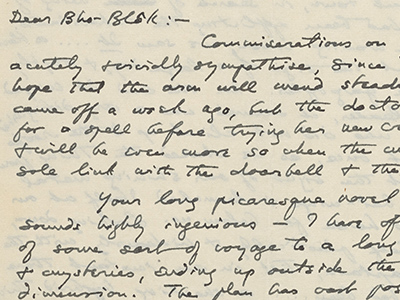 Dear Bho-Blôk :—
Commiserations on
acutely vividly sympathise, since
hope that the arm will mend stead
came off a week ago, but the docto
for a spell before trying her new cr
& will be even more so when the
sole link with the doorbell & the
Your long picaresque novel
sounds highly ingenious — I have of
of some sort of voyage to a long
& mysteries, ending up outside the
dimension. The plan has vast pos